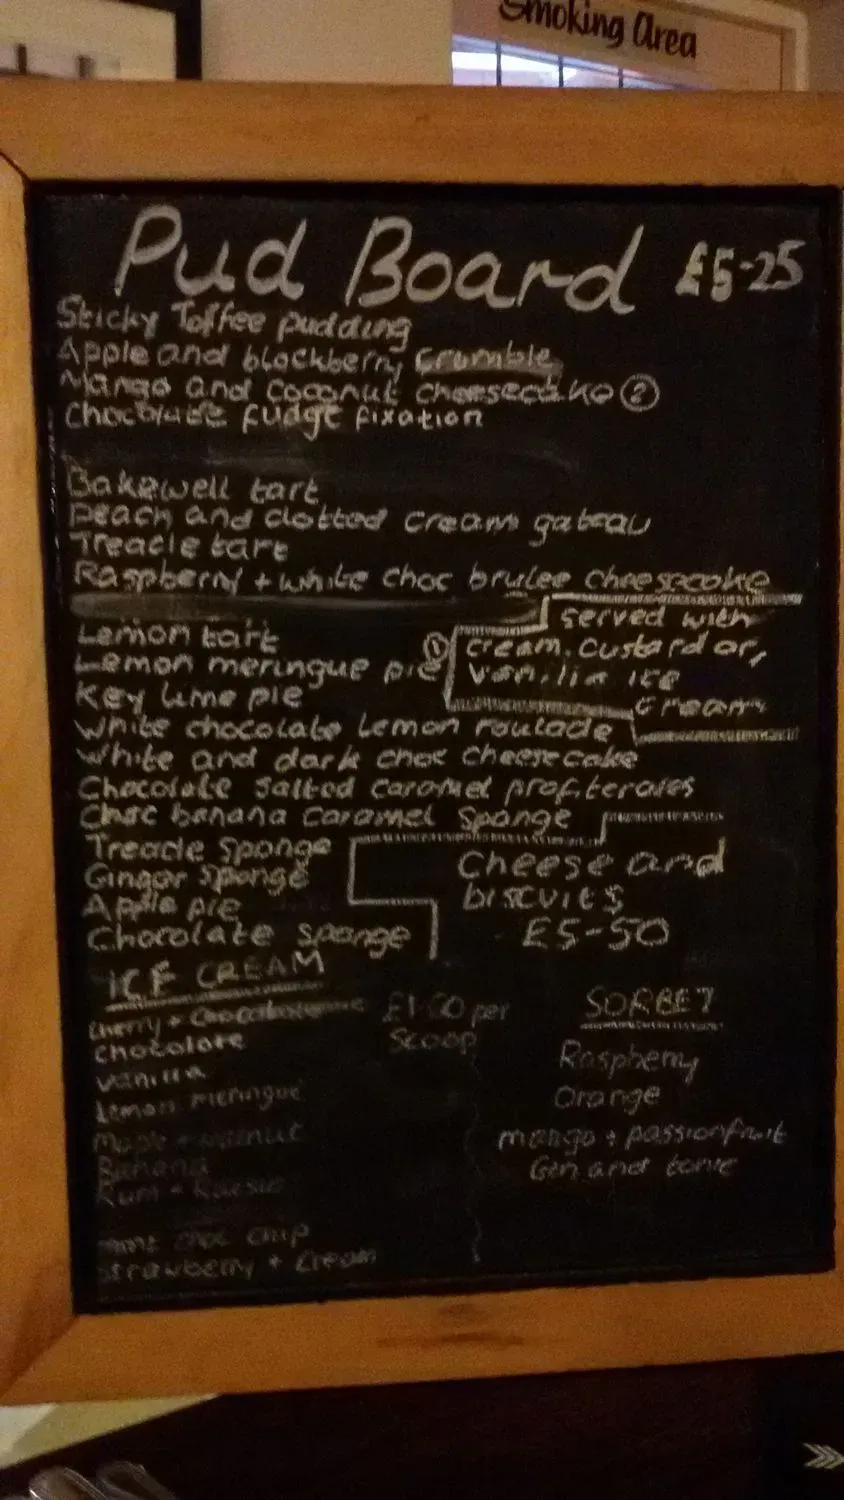 Smoking Area
Pud Board £5-25
Sticky Toffee pudding
Apple and blackberry crumble
Mango and coconut cheesecake ②
Chocolate fudge fixation
Bakewell tart
Peach and clotted cream gateau
Treacle tart
Raspberry + white choc brulee cheesecake
served with
cream, custard or,
vanilla ice
cream
Lemon tart
Lemon meringue pie ①
Key lime pie
White chocolate Lemon roulade
White and dark choc cheesecake
Chocolate salted caramel profiteroles
Choc banana caramel sponge
Treacle sponge
Ginger sponge
Apple pie
Chocolate sponge
Cheese and
biscuits
£5-50
ICE CREAM
£1-60 per
scoop
Cherry +
Chocolate
Vanilla
Lemon meringue
Maple + walnut
Banana
Rum + Raisin
mint choc chip
Strawberry + Cream
SORBET
Raspberry
Orange
mango + passionfruit
Gin and tonic